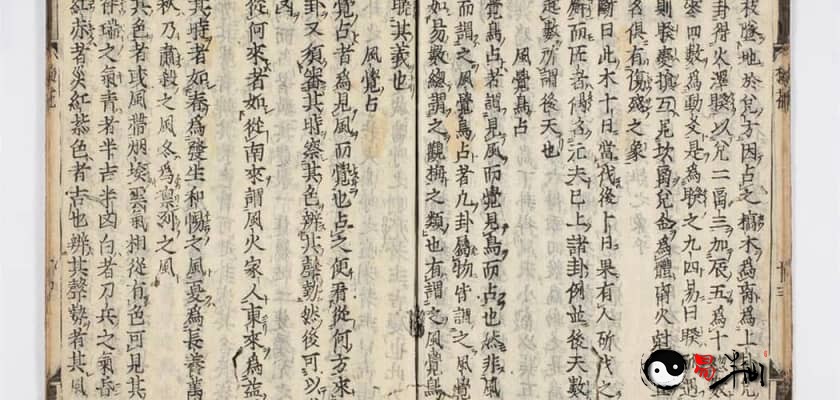 枝墜地於兌方因占之槁木為离為上卦兌
卦得火澤睽以兌二离三加辰五為十數
零四數為動爻是為睽之九四易曰睽孤遇
則睽變損互見坎离兌金為體离火尅
名俱有傷殘之象
斷曰此木十日當伐後十日果有人斫伐之
廨而匠者偶名元夫已上諸卦例並後天數
起數所謂後天也
風覺鳥占
風覺鳥占者謂見風而覺見鳥而占也然非風
而謂之風覺鳥占者凡卦屬物皆謂之風覺
如易數總謂之觀梅之類也有謂之風覺鳥
其義也
風覺占
覺占者為見風而覺也占之便看從何方來
卦又須審其時察其色辨其聲勢然後可以
凶
從何來者如從南來謂風火家人東來為益
其時者如春為發生和暢之風夏為長養萬
秋乃肅殺之風冬為凜冽之風
其色者或風帶烟埃雲氣相從有色可見其
祥瑞之氣青者半吉半凶白者刀兵之氣昏
紅赤者災紅紫色者吉也辨其聲勢者其風